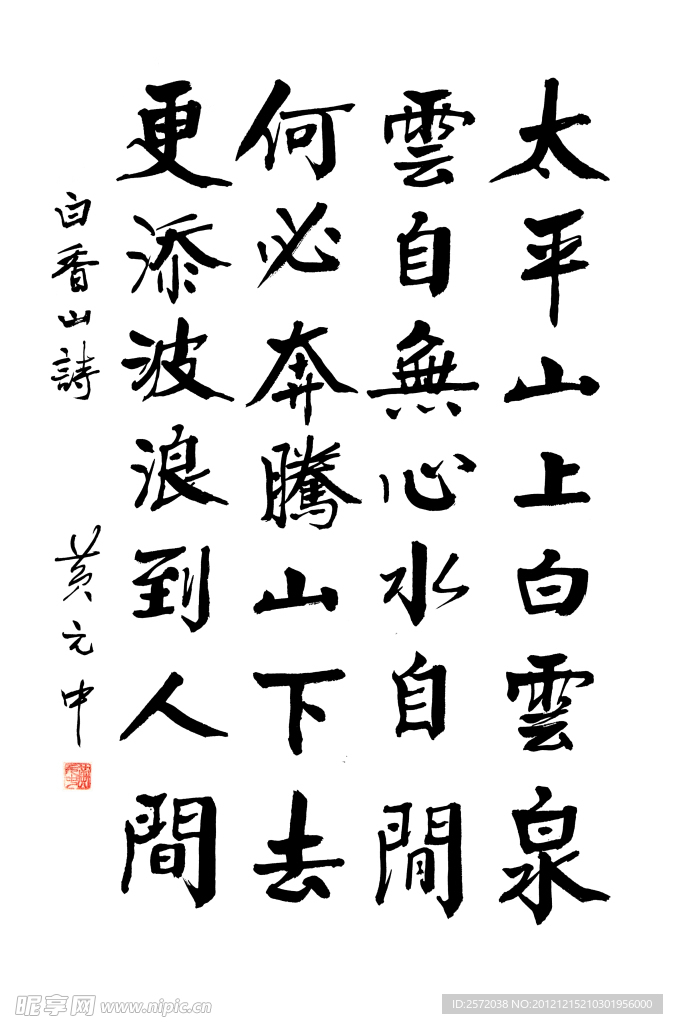 太平山上白雲泉
雲自無心水自閒
何必奔騰山下去
更添波浪到人間
白香山詩
黃元中
昵享网 www.nipic.cn
ID:2572038 NO:20121215210301956000